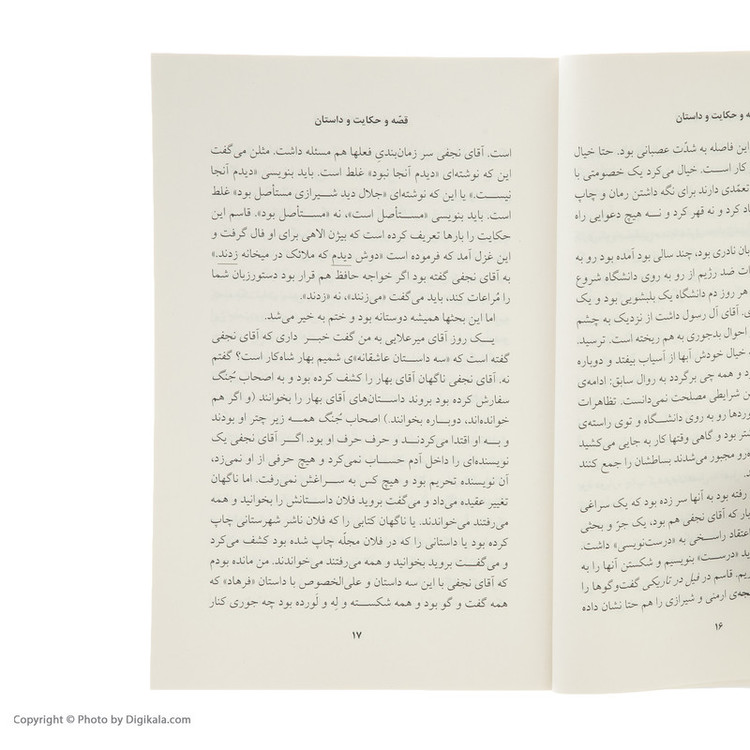 ه و حکایت و داستان
این فاصله به شدّت عصبانی بود. حتا خیال
کار است. خیال می‌کرد یک خصومتی با
تعمّدی دارند برای نگه داشتن رمان و چاپ
اد کرد و نه قهر کرد و نــه هیچ دعوایی راه
بان نادری بود، چند سالی بود آمده بود رو به
ات ضد رژیم از رو به روی دانشگاه شروع
هر روز دم دانشگاه یک بلبشویی بود و یک
ی. آقای آل رسول داشت از نزدیک به چشم
احوال بدجوری به هم ریخته است. ترسید.
ه خیال خودش آبها از آسیاب بیفتد و دوباره
د و همه چی برگردد به روال سابق: ادامه‌ی
ن شرایطی مصلحت نمی‌دانست. تظاهرات
وردها رو به روی دانشگاه و توی راسته‌ی
شتر بود و گاهی وقتها کار به جایی می‌کشید
ه‌رو مجبور می‌شدند بساطشان را جمع کنند
د.
رفته بود به آنها سر زده بود که یک سراغی
بار که آقای نجفی هم بود، یک جرّ و بحثی
اعتقاد راسخی به «درست‌نویسی» داشت.
ید «درست» بنویسیم و شکستن آنها را به
یم. قاسم در فیل در تاریکی گفت‌وگوها را
جه‌ی ارمنی و شیرازی را هم حتا نشان داده
۱۶
قصّه و حکایت و داستان
است. آقای نجفی سر زمان‌بندیِ فعلها هم مسئله داشت. مثلن می‌گفت
این که نوشته‌ای «دیدم آنجا نبود» غلط است. باید بنویسی «دیدم آنجا
نیست.» یا این که نوشته‌ای «جلال دید شیــرازی مستأصل بود» غلط
است. باید بنویسی «مســتأصل است»، نه «مســتأصل بود». قاسم این
حکایت را بارها تعریف کرده است که بیژن الاهی برای او فال گرفت و
این غزل آمد که فرموده است «دوش دیدم که ملائک در میخانه زدند.»
به آقای نجفی گفته بود اگر خواجه حافظ هم قرار بود دستورزبان شما
را مُراعات کند، باید می‌گفت «می‌زنند»، نه «زدند».
اما این بحثها همیشه دوستانه بود و ختم به خیر می‌شد.
یــک روز آقای میرعلایی به من گفت خبــر داری که آقای نجفی
گفته است که «سه داستان عاشقانه»ی شمیم بهار شاه‌کار است؟ گفتم
نه. آقای نجفی ناگهان آقای بهار را کشف کرده بود و به اصحاب جُنگ
سفارش کرده بود بروند داستان‌های آقای بهار را بخوانند (و اگر هم
خوانده‌اند، دوبــاره بخوانند.) اصحاب جُنگ همــه زیر چتر او بودند
و بــه او اقتدا می‌کردنــد و حرف حرف او بود. اگــر آقای نجفی یک
نویسنده‌ای را داخل آدم حســاب نمی‌کرد و هیچ حرفی از او نمی‌زد،
آن نویسنده تحریم بود و هیچ کس به ســراغش نمی‌رفت. اما ناگهان
تغییر عقیده می‌داد و می‌گفت بروید فلان داستانش را بخوانید و همه
می‌رفتند می‌خواندند. یا ناگهان کتابی را که فلان ناشر شهرستانی چاپ
کرده بود یا داستانی را که در فلان مجلّه چاپ شده بود کشف می‌کرد
و می‌گفت بروید بخوانید و همه می‌رفتند می‌خواندند. من مانده بودم
که آقای نجفی با این سه داستان و علی‌الخصوص با داستان «فرهاد» که
همه گفت و گو بود و همه شکســته و لِه و لَورده بود چه جوری کنار
۱۷
Copyright © Photo by Digikala.com